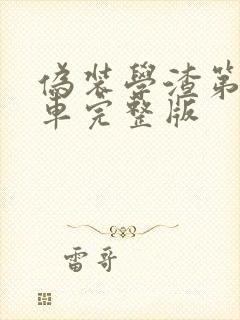 偽装學渣第
車完整版
雷哥